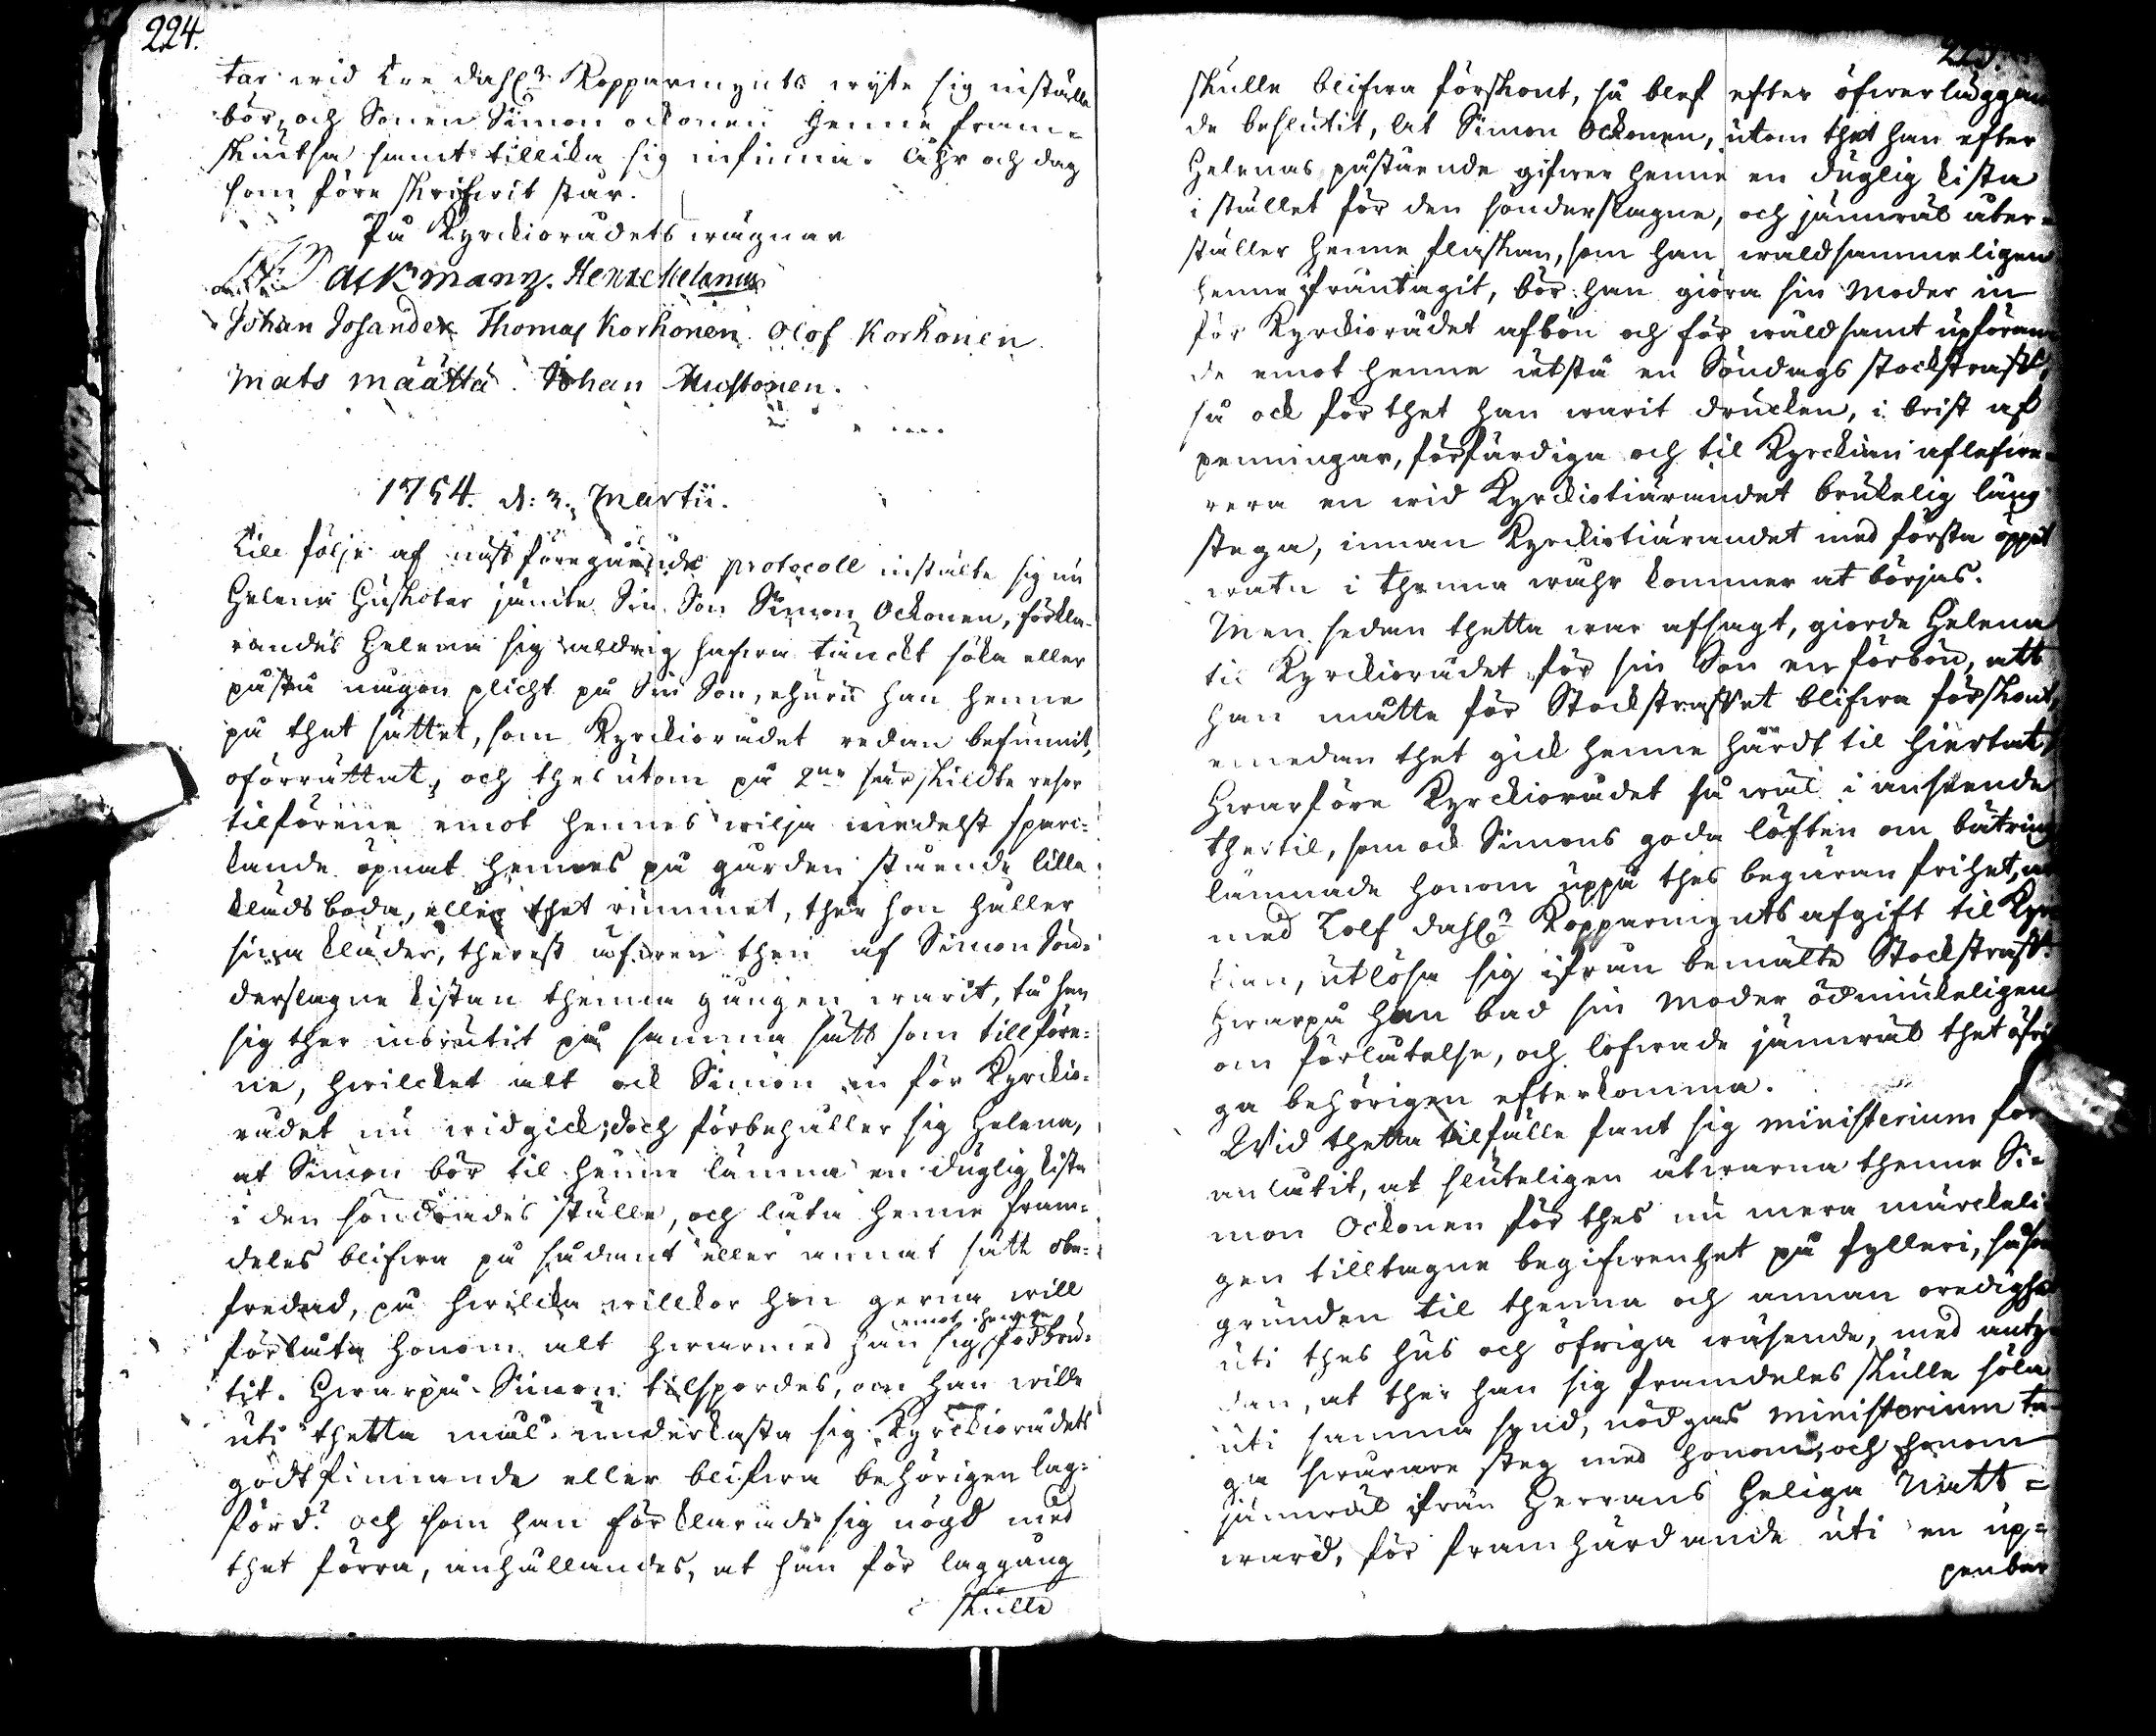 224.
tar wid tre dahl:r Kopparmynts wyte sig inställa
bör, och Sonen Simon ockonen henne fram-
skiutsa samt tillika sig infinna. Åhr och dag
som före skrifwit står.
På Kyrckiorådets wägnar
Ackmann. Henr. Helanus
Johan Josander Thomas Korhonen Olof Korhonen
Mats määttä. Johan Mustonen.
1754. d: 3. Martii.
Till följe af näst föregående protocoll instälte sig nu
Helena Huskotar jämte Sin Son Simon Ockonen, förkla-
randes Helena sig aldrig hafwa tänckt söka eller
påstå någon plicht på Sin Son, ehuru han henne
på thet sättet, som Kyrckiorådet redan befunnit,
oförrättat, och thes utom på 2ne särskildte resor
tilförene emot hennes wilja medelst spar-
kande öpnat hennes på gården stående lilla
klädsboda, eller thet rummet, ther hon håller
sina kläder, therest äfwen then af Simon sön-
derslagne kistan thenna gången warit, tå han
sig ther inbrutit på samma sätt som tillföre-
ne, hwilcket alt ock Simon in för Kyrckio-
rådet nu widgick; doch förbehåller sig Helena,
at Simon bör til henne lämna en duglig kista
i den söndrades ställe, och låta henne fram-
deles blifwa på sådant eller annat sätt obe-
fredad, på hwilcka willkor hon gerna will
förlåta honom alt hwarmed han sig emot henne förbru-
tit. Hwarpå Simon tilspordes, om han wille
uti thetta mål underkasta sig Kyrckiorådets
godtfinnande eller blifwa behörigen lag-
förd? och som han förklarade sig nögd med
thet förra, anhållandes, at han för laggång
skulle
225.
skulle blifwa förskont, så blef efter öfwerläggan-
de beslutit, at Simon Ockonen, utom thet han efter
Helenas påstående gifwer henne en duglig kista
i stället för den sönderslagne, och jämwäl åter-
ställer henne flaskan, som han wåldsammeligen
henne ifråntagit, bör han giöra sin Moder in
för Kyrckiorådet afbön och för wåldsamt upföran-
de emot henne utstå en Söndags stockstraff,
så ock för thet han warit drucken, i brist af
penningar, förfärdiga och til Kyrckian aflefwe-
rera en wid Kyrckiotiärandet brukelig lång
stega, innan Kyrckiotiärandet med första öppit
watn i thenna wåhr kommer at börjas.
Men sedan thetta war afsagt, giorde Helena
til Kyrckiorådet för sin Son en förbön, att
han måtte för Stockstraffet blifwa förskont,
emedan thet gick henne hårdt til hiertat,
Hwarföre Kyrckiorådet så wäl i anseende
thertil, som ock Simons goda löften om bätring
lämnade honom uppå thes begäran frihet, at
med Tolf dahl:r Kopparmynts afgift til Kyr-
kian, utlösa sig ifrån bemälte Stockstraff.
Hwarpå han bad sin Moder ödmiukeligen
om förlåtelse, och lofwade jämwäl thet öfri-
ga behörigen efterkomma.
Wid thetta tilfälle fant sig ministerium för-
anlåtit, at sluteligen åtwarna thenne Si-
mon Ockonen för thes nu mera märckeli-
gen tilltagne begifwenhet på fylleri, såsom
grunden til thenna och annan oredighet
uti thes hus och öfriga wäsende, med anty-
dan, at ther han sig framdeles skulle söla
uti samma synd, nödgas ministerium ta-
ga swårare steg med honom, och honom
jämwäl ifrån Herrans Heliga Natt-
ward, för framhärdande uti en up-
penbar